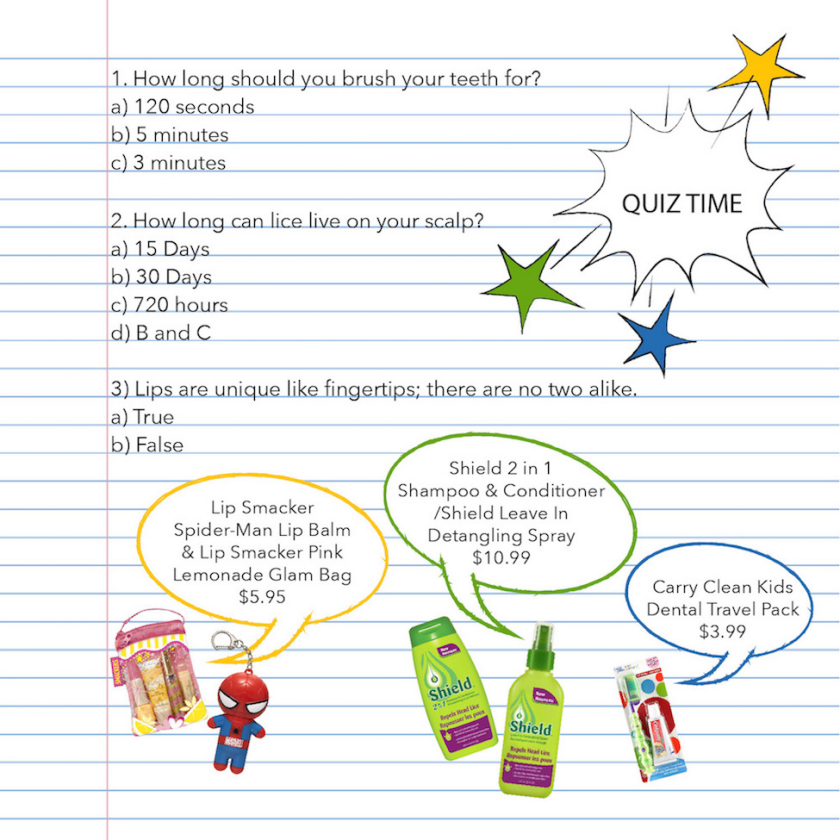 1. How long should you brush your teeth for?
a) 120 seconds
b) 5 minutes
c) 3 minutes
QUIZ TIME
2. How long can lice live on your scalp?
a) 15 Days
b) 30 Days
c) 720 hours
d) B and C
3) Lips are unique like fingertips; there are no two alike.
a) True
b) False
Lip Smacker
Spider-Man Lip Balm
& Lip Smacker Pink
Lemonade Glam Bag
$5.95
Shield 2 in 1
Shampoo & Conditioner
/Shield Leave In
Detangling Spray
$10.99
Carry Clean Kids
Dental Travel Pack
$3.99
MARVEL
Shield
2in1
Repels Head Lice
Repousser les poux
Shield
Repels Head Lice
Repousser les poux